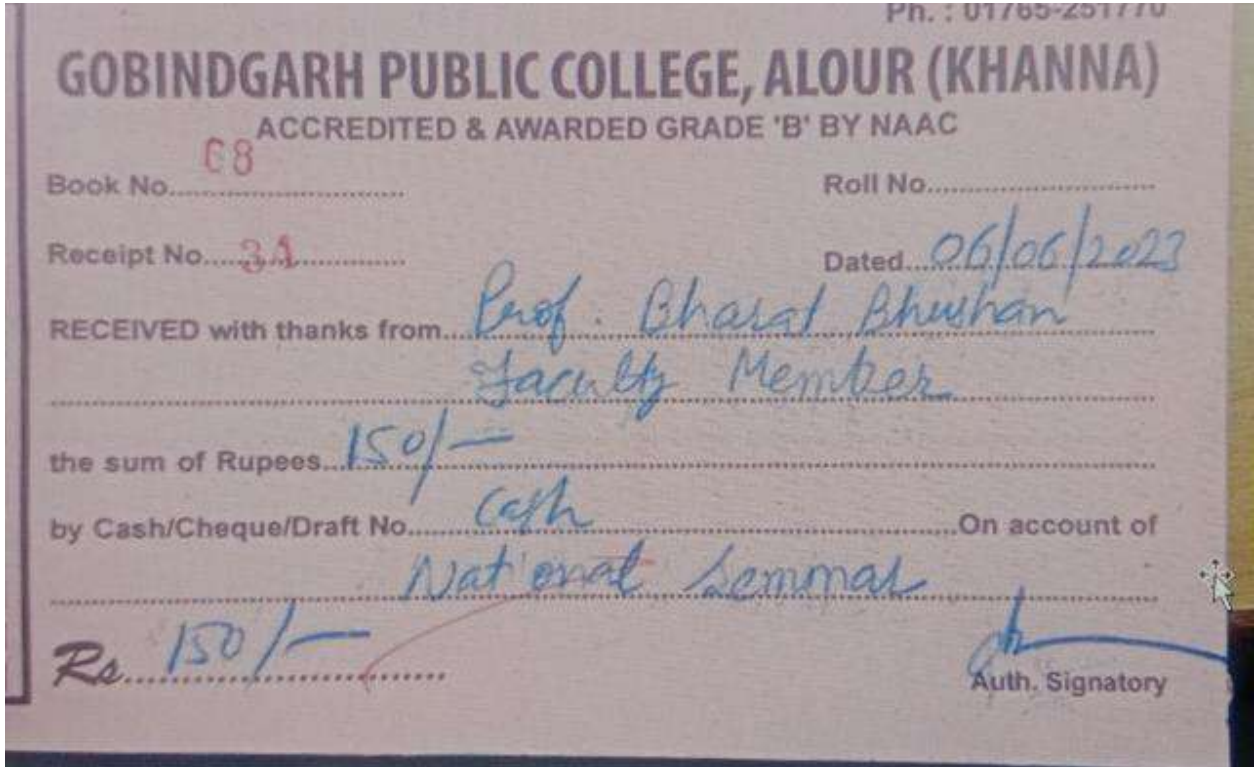 Ph. : 01765-251770
GOBINDGARH PUBLIC COLLEGE, ALOUR (KHANNA)
ACCREDITED & AWARDED GRADE 'B' BY NAAC
Book No. 68 Roll No.
Receipt No. 31 Dated 06/06/2023
RECEIVED with thanks from Prof. Bharat Bhushan
Faculty Member
the sum of Rupees 150/-
by Cash/Cheque/Draft No. Cash On account of
National Seminar
Rs. 150/-
Auth. Signatory